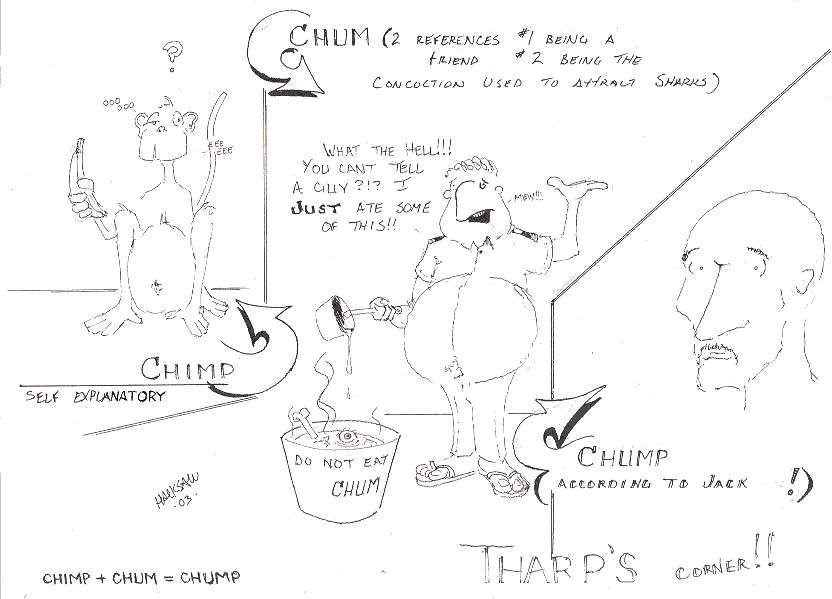 CHUM (2 REFERENCES #1 BEING A
FRIEND #2 BEING THE
CONCOCTION USED TO ATTRACT SHARKS)
?
ooo
ooo
EEE
EEE
WHAT THE HELL!!!
YOU CANT TELL
A GUY?!? I
JUST ATE SOME
OF THIS!!
MEW!!!
CHIMP
SELF EXPLANATORY
DO NOT EAT
CHUM
CHUMP
(ACCORDING TO JACK !)
HACKSAW
.03.
THARP'S CORNER!!
CHIMP + CHUM = CHUMP